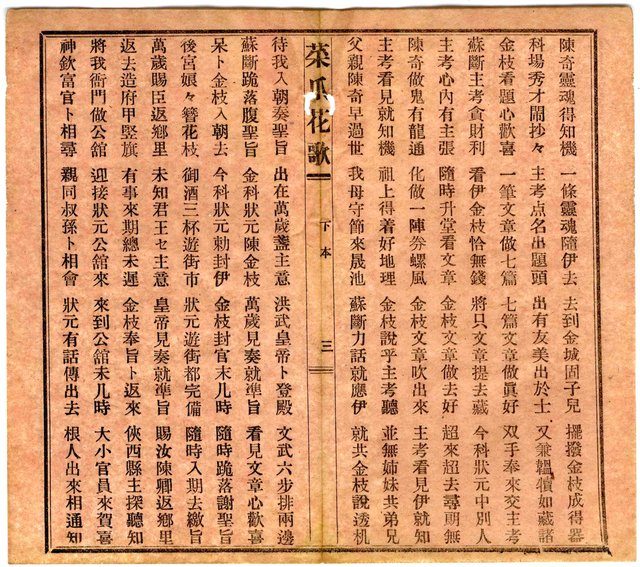 陳奇靈魂得知機 一條靈魂隨伊去 去到金城固子兒 擺撥金枝成得器
科場秀才鬧抄々 主考点名出題頭 出有友美出於士 又兼韞匵如藏諸
金枝看題心歡喜 一筆文章做七篇 七篇文章做眞好 双手奉來交主考
蘇斷主考貪財利 看伊金枝恰無錢 將只文章提去藏 今科狀元中別人
主考心內有主張 隨時升堂看文章 金枝文章做去好 超來超去尋無
陳奇做鬼有龍通 化做一陣劵螺風 金枝文章吹出來 主考看見伊就知
主考看見就知機 祖上得着好地理 金枝說乎主考聽 並無姉妹共弟兄
父親陳奇早過世 我母守節來晟池 蘇斷力話就應伊 就共金枝說透机
菜瓜花歌 下本 三
待我入朝奏聖旨 出在萬歲盞主意 洪武皇帝卜登殿 文武六步排兩邊
蘇斷跪落腹聖旨 金科狀元陳金枝 萬歲見奏就準旨 看見文章心歡喜
呆卜金枝入朝去 今科狀元勅封伊 金枝封官未几時 隨時跪落謝聖旨
後宮娘々簪花枝 御酒三杯遊街市 狀元遊街都完備 隨時入期去繳旨
萬歲賜臣返鄉里 未知君王セ主意 皇帝見奏就準旨 賜汝陳卿返鄉里
返去造府甲竪旗 有事來期總未遲 金枝奉旨卜返來 俠西縣主探聽知
將我衙門做公舘 迎接狀元公舘來 來到公舘未几時 大小官員來賀喜
神欽富官卜相尋 親同叔孫卜相會 狀元有話傳出去 根人出來相通知